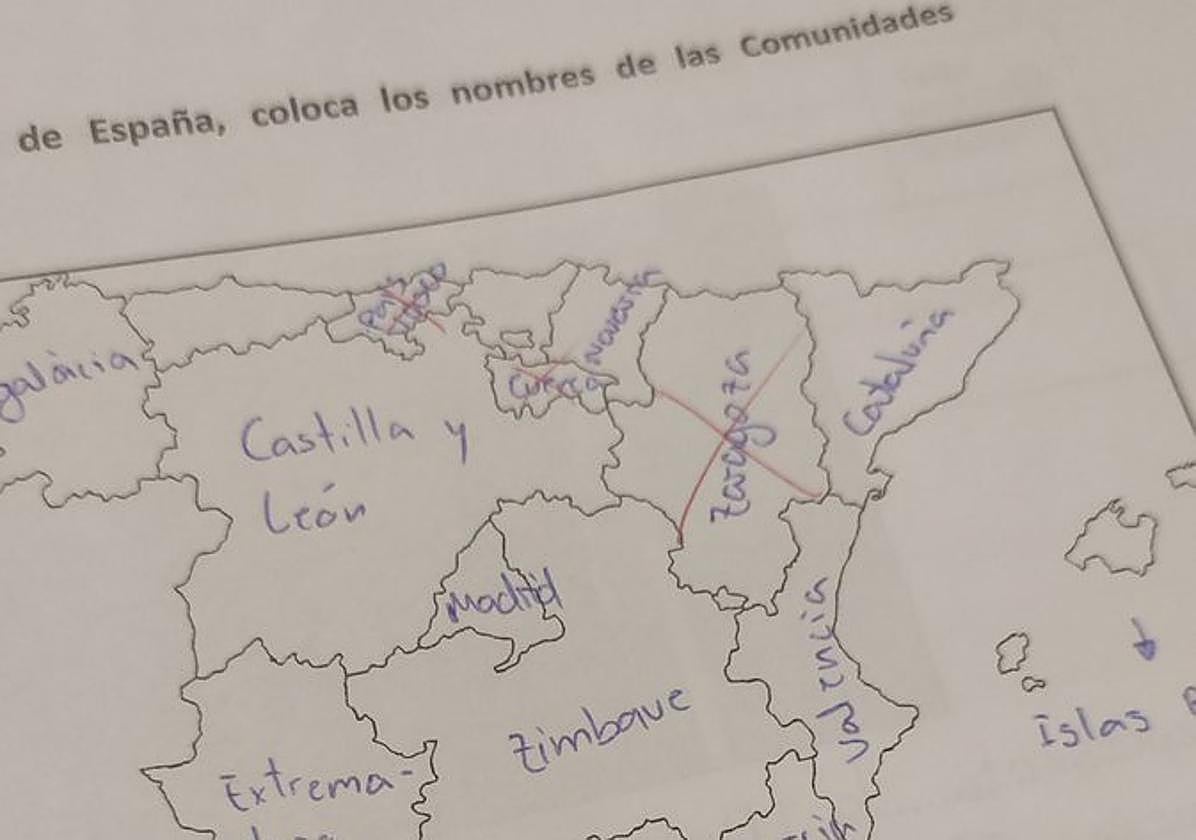 de España, coloca los nombres de las Comunidades
País
Vasco
Navarra
galàcia
Cuenca
Cataluña
Castilla y
León
Zaragoza
Madrid
Valencia
Zimbaue
Islas
Extrema-